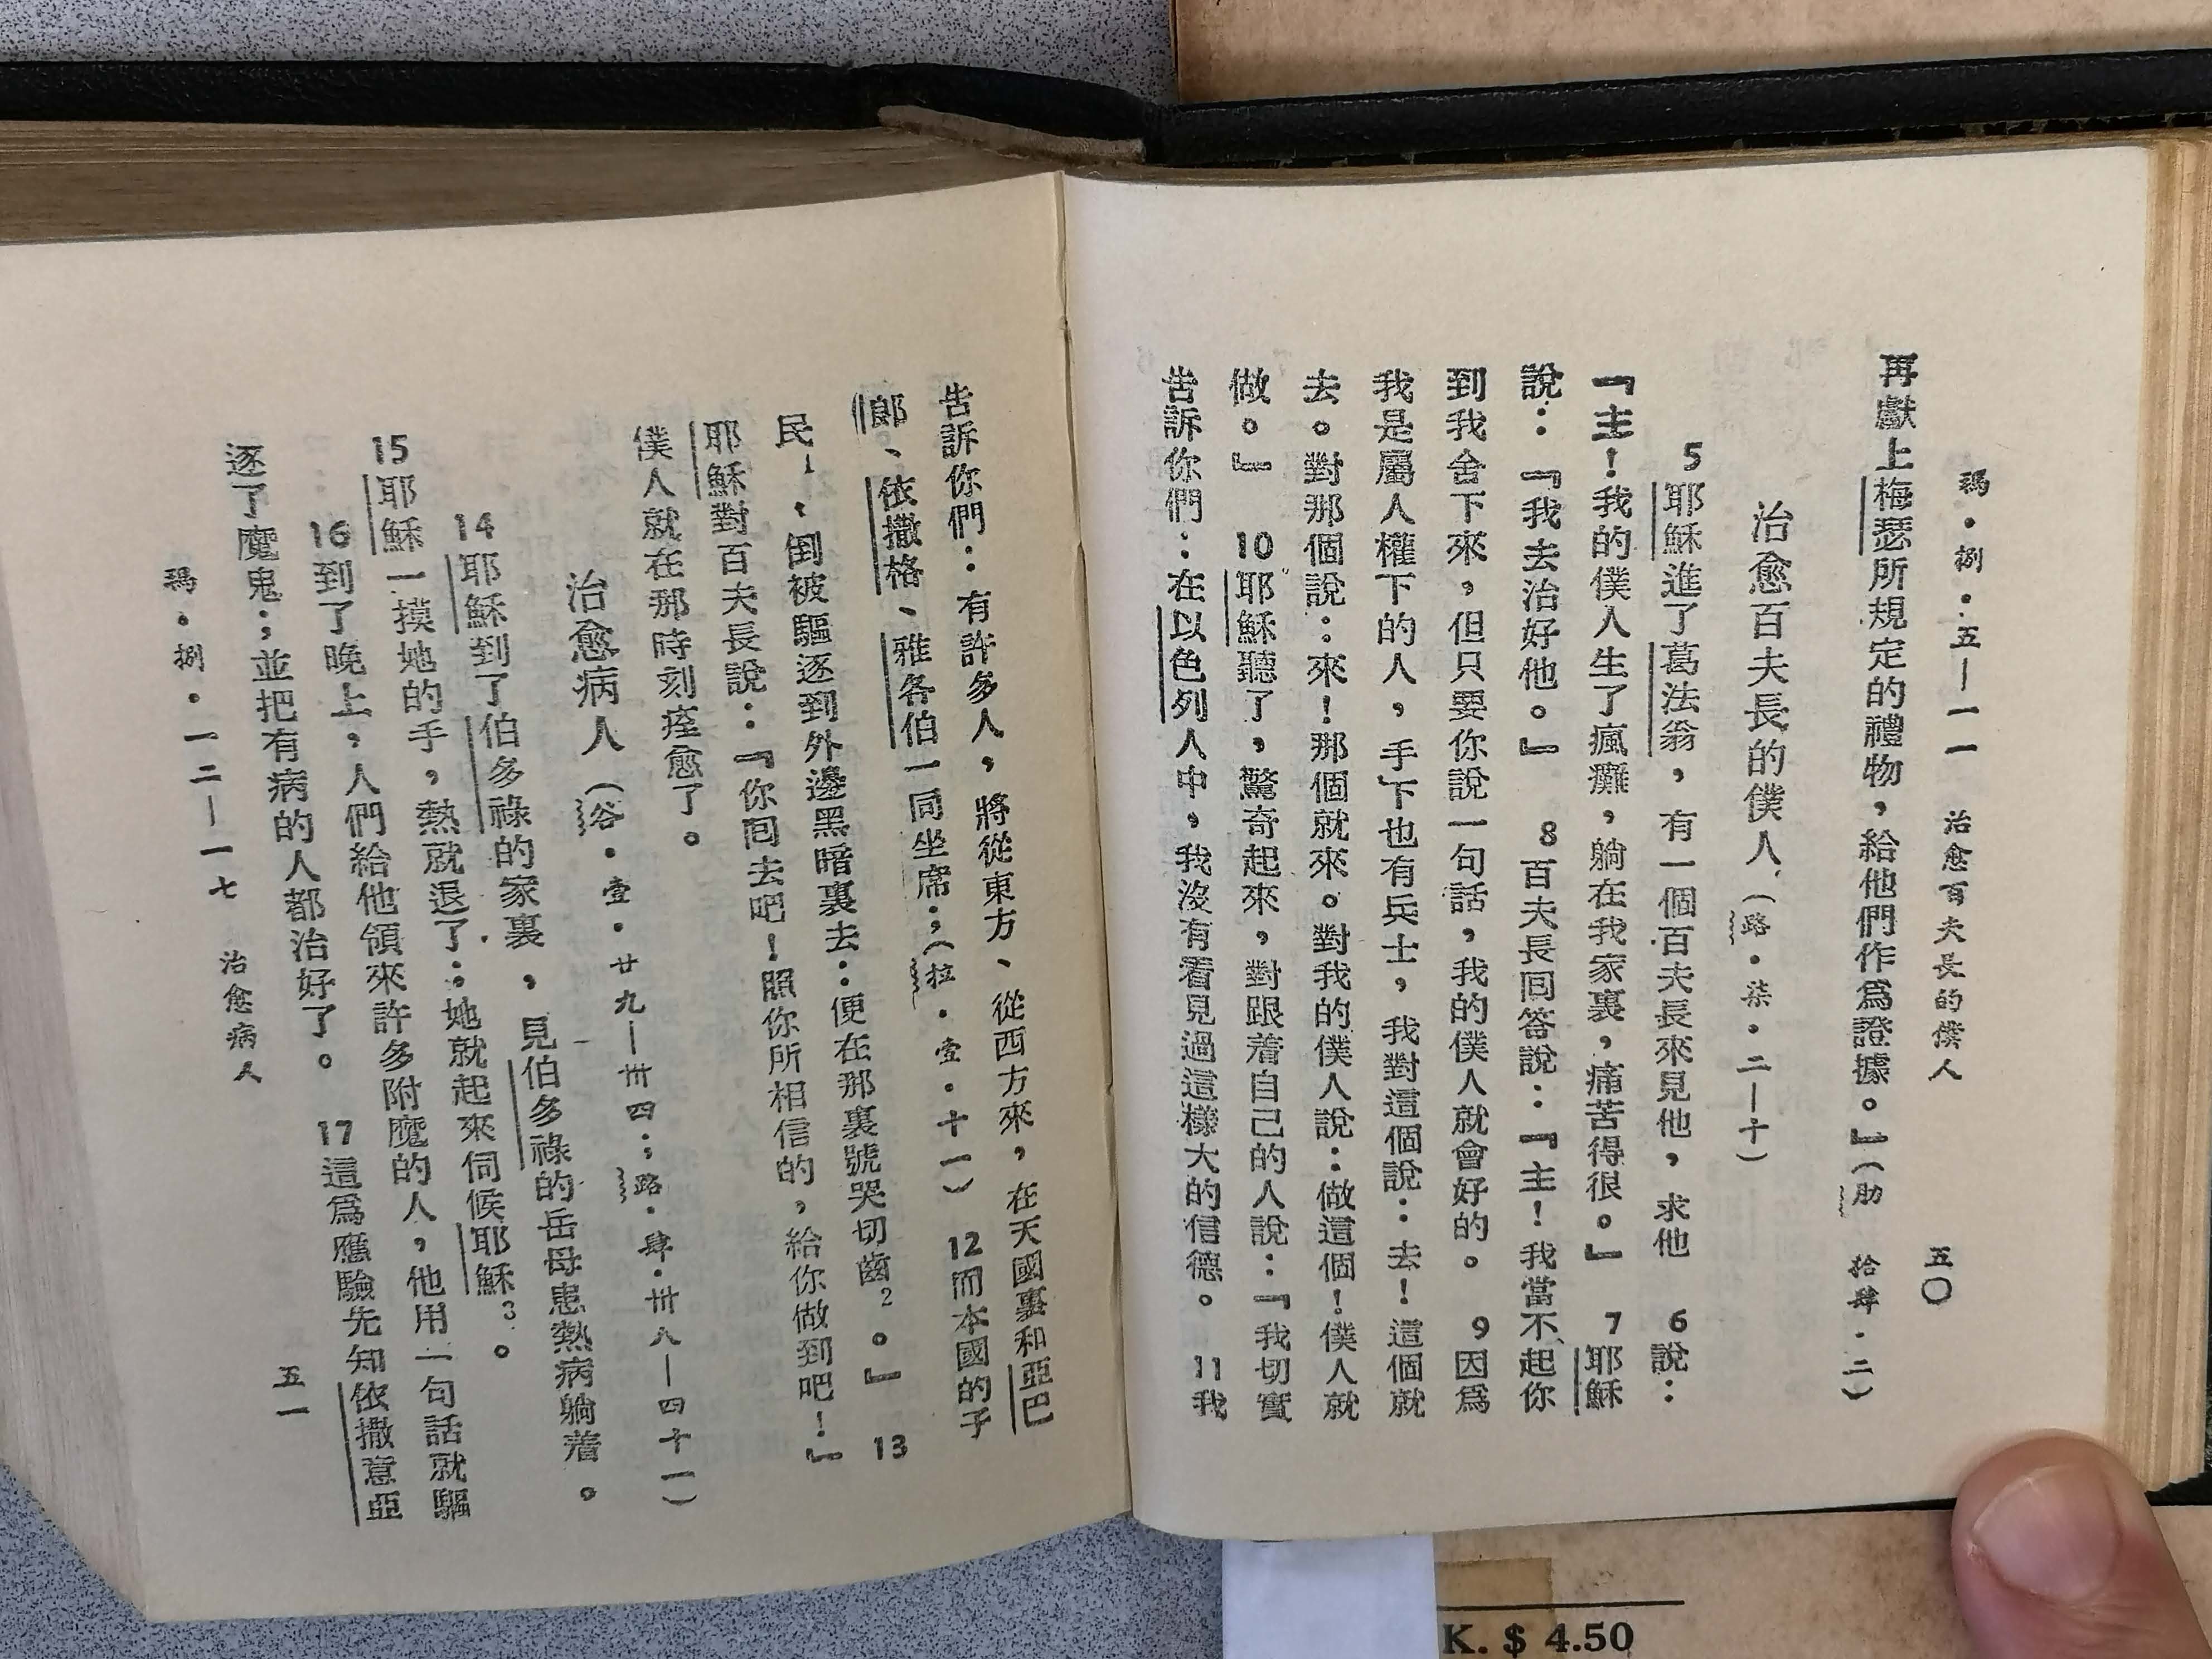 瑪・捌・五—一一　治愈百夫長的僕人　五〇
再獻上梅瑟所規定的禮物，給他們作爲證據。』（肋　拾肆・二）
治愈百夫長的僕人（路・柒・二—十）
5耶穌進了葛法翁，有一個百夫長來見他，求他　6說：
『主！我的僕人生了瘋癱，躺在我家裏，痛苦得很。』　7耶穌
說：『我去治好他。』　8百夫長回答說：『主！我當不起你
到我舍下來，但只要你說一句話，我的僕人就會好的。　9因爲
我是屬人權下的人，手下也有兵士，我對這個說：去！這個就
去。對那個說：來！那個就來。對我的僕人說：做這個！僕人就
做。』　10耶穌聽了，驚奇起來，對跟着自己的人說：『我切實
告訴你們：在以色列人中，我沒有看見過這樣大的信德。　11我
告訴你們：有許多人，將從東方、從西方來，在天國裏和亞巴
郎、依撒格、雅各伯一同坐席；（拉・壹・十一）　12而本國的子
民1，倒被驅逐到外邊黑暗裏去：便在那裏號哭切齒2。』　13
耶穌對百夫長說：『你回去吧！照你所相信的，給你做到吧！』
僕人就在那時刻痊愈了。
治愈病人（谷・壹・廿九—卅四；路・肆・卅八—四十一）
14耶穌到了伯多祿的家裏，見伯多祿的岳母患熱病躺着。
15耶穌一摸她的手，熱就退了；她就起來伺候耶穌3。
16到了晚上，人們給他領來許多附魔的人，他用一句話就驅
逐了魔鬼；並把有病的人都治好了。　17這爲應驗先知依撒意亞
瑪・捌・一二—一七　治愈病人　五一
K. $ 4.50